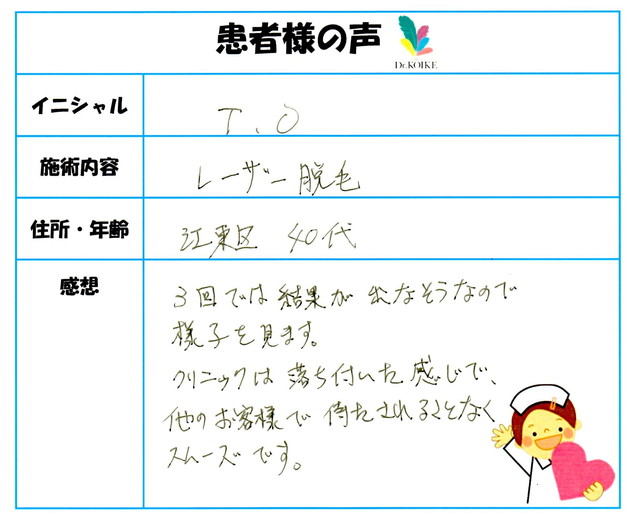 患者様の声
Dr.KOIKE
イニシャル
T.O
施術内容
レーザー脱毛
住所・年齢
江東区 40代
感想
3回では結果が出なそうなので
様子を見ます。
クリニックは落ち付いた感じで、
他のお客様で待たされることなく
スムーズです。